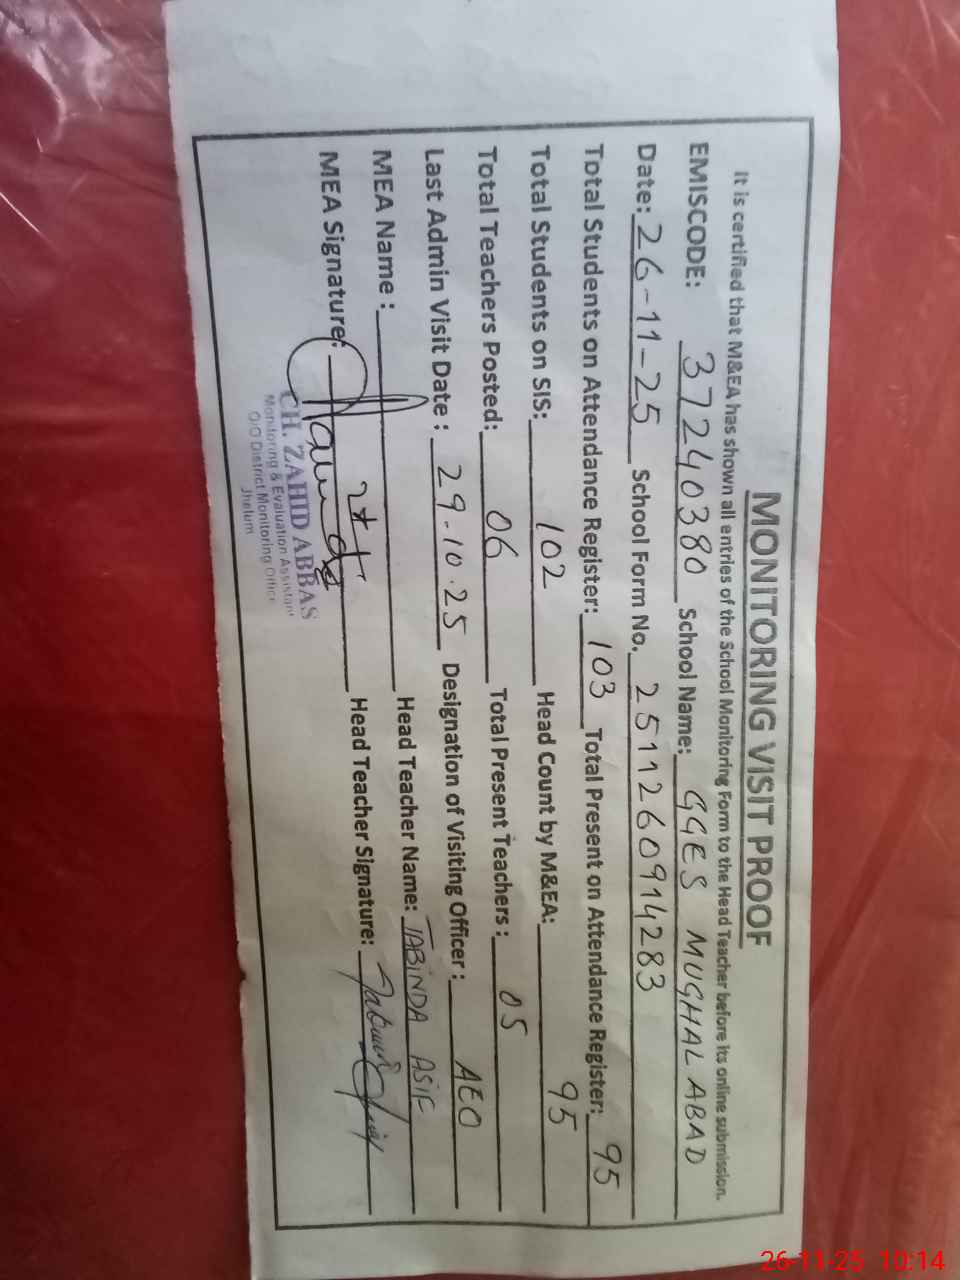 MONITORING VISIT PROOF
It is certified that M&EA has shown all entries of the School Monitoring Form to the Head Teacher before its online submission.
EMISCODE: 37240380 School Name: GGES MUGHAL ABAD
Date: 26-11-25 School Form No. 2511260914283
Total Students on Attendance Register: 103 Total Present on Attendance Register: 95
Total Students on SIS: 102 Head Count by M&EA: 95
Total Teachers Posted: 06 Total Present Teachers: 05
Last Admin Visit Date: 29.10.25 Designation of Visiting Officer: AEO
MEA Name: Head Teacher Name: TABINDA ASIF
MEA Signature: Head Teacher Signature:
CH. ZAHID ABBAS
Monitoring & Evaluation Assistant
O/O District Monitoring Office
Jhelum
26-11-25 10:14